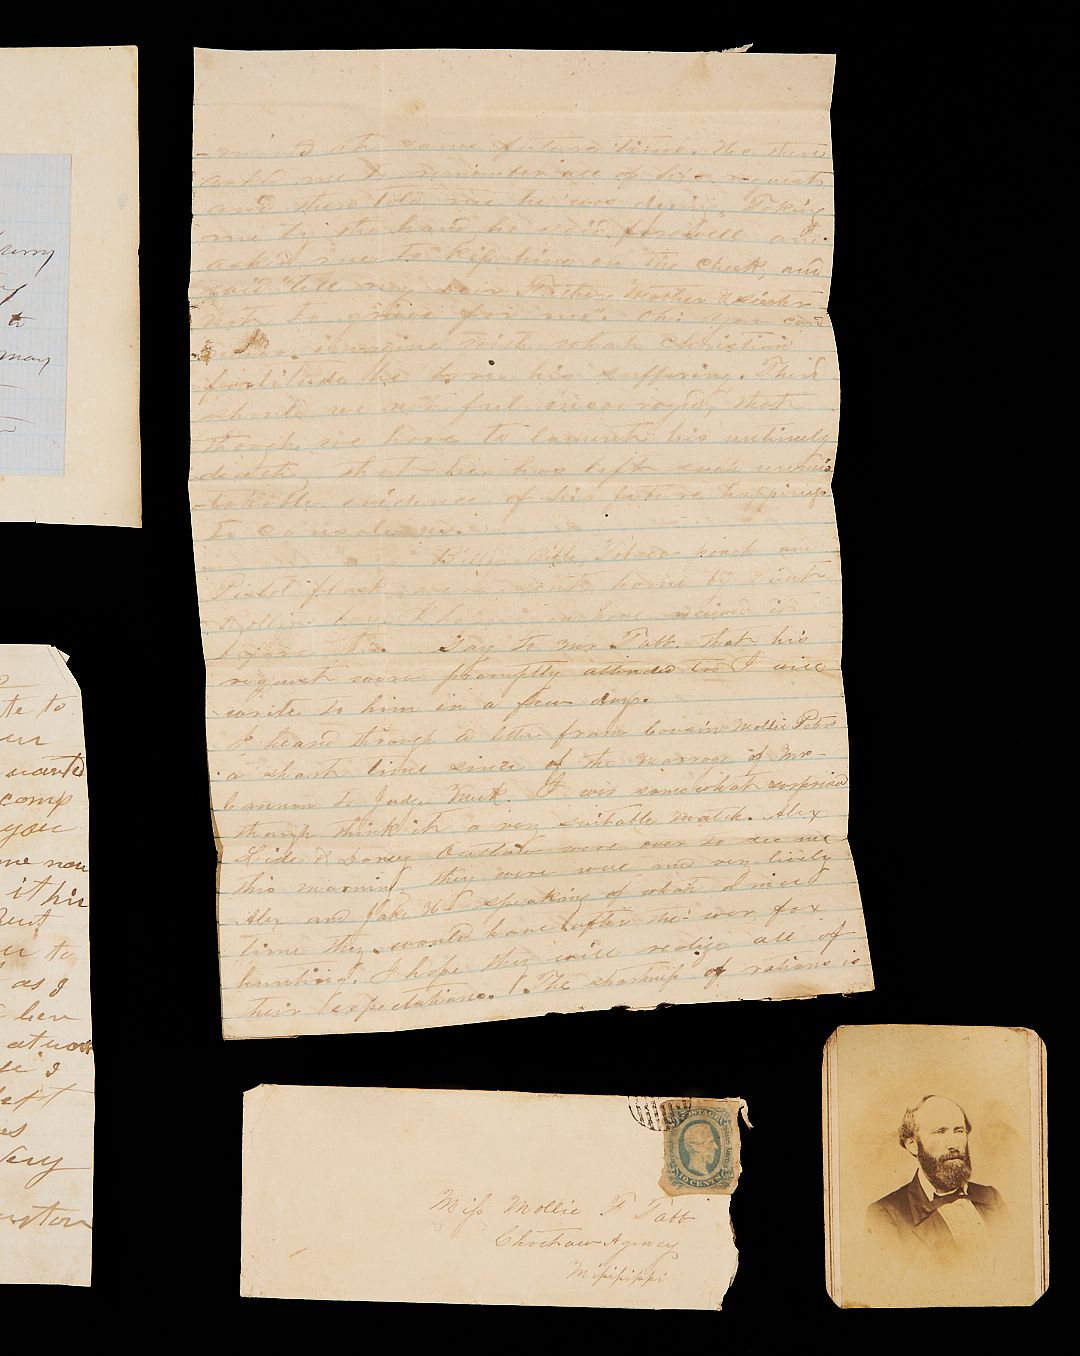 urry
to
may
te to
wanted
comp
you
me now
it his
Bent
to
as I
here
at work
I
left
Very
-mind at some future time. He then
asked me to remember all of his requests
and then told me he was dying, Taking
me by the hand he said farewell and
asked me to kiss him on the cheek, and
said "tell my dear Father, Mother & sister
not to grieve for me". Oh! you can
imagine with what Christian
fortitude he bore his suffering. Then
should we not feel encouraged, that
though we have to lament his untimely
death, that he has left such unmis
-takable evidence of his future happiness
to console us.
Billy's Bible, Tobacco pouch and
Pistol flask were sent home by Lieut
I hope you have received it
before this. Say to Mr. Tabb. that his
request were promptly attended to I will
write to him in a few days.
I heard through a letter from Cousin Mollie Peters
a short time since of the marrage of Mr-
Cannon to Judge Meek. I was somewhat surprised
though think it a very suitable match. Alex
Lide & Dorsey Outlaw were over to see me
this morning they were well and very lively
Alex and Jake speaking of what a nice
time they would have after the war, fox
hunting. I hope they will realize all of
their expectations. The shortness of rations is
POSTAGE
10 CENTS
Miss Mollie F Tabb
Choctaw Agency
Missippi